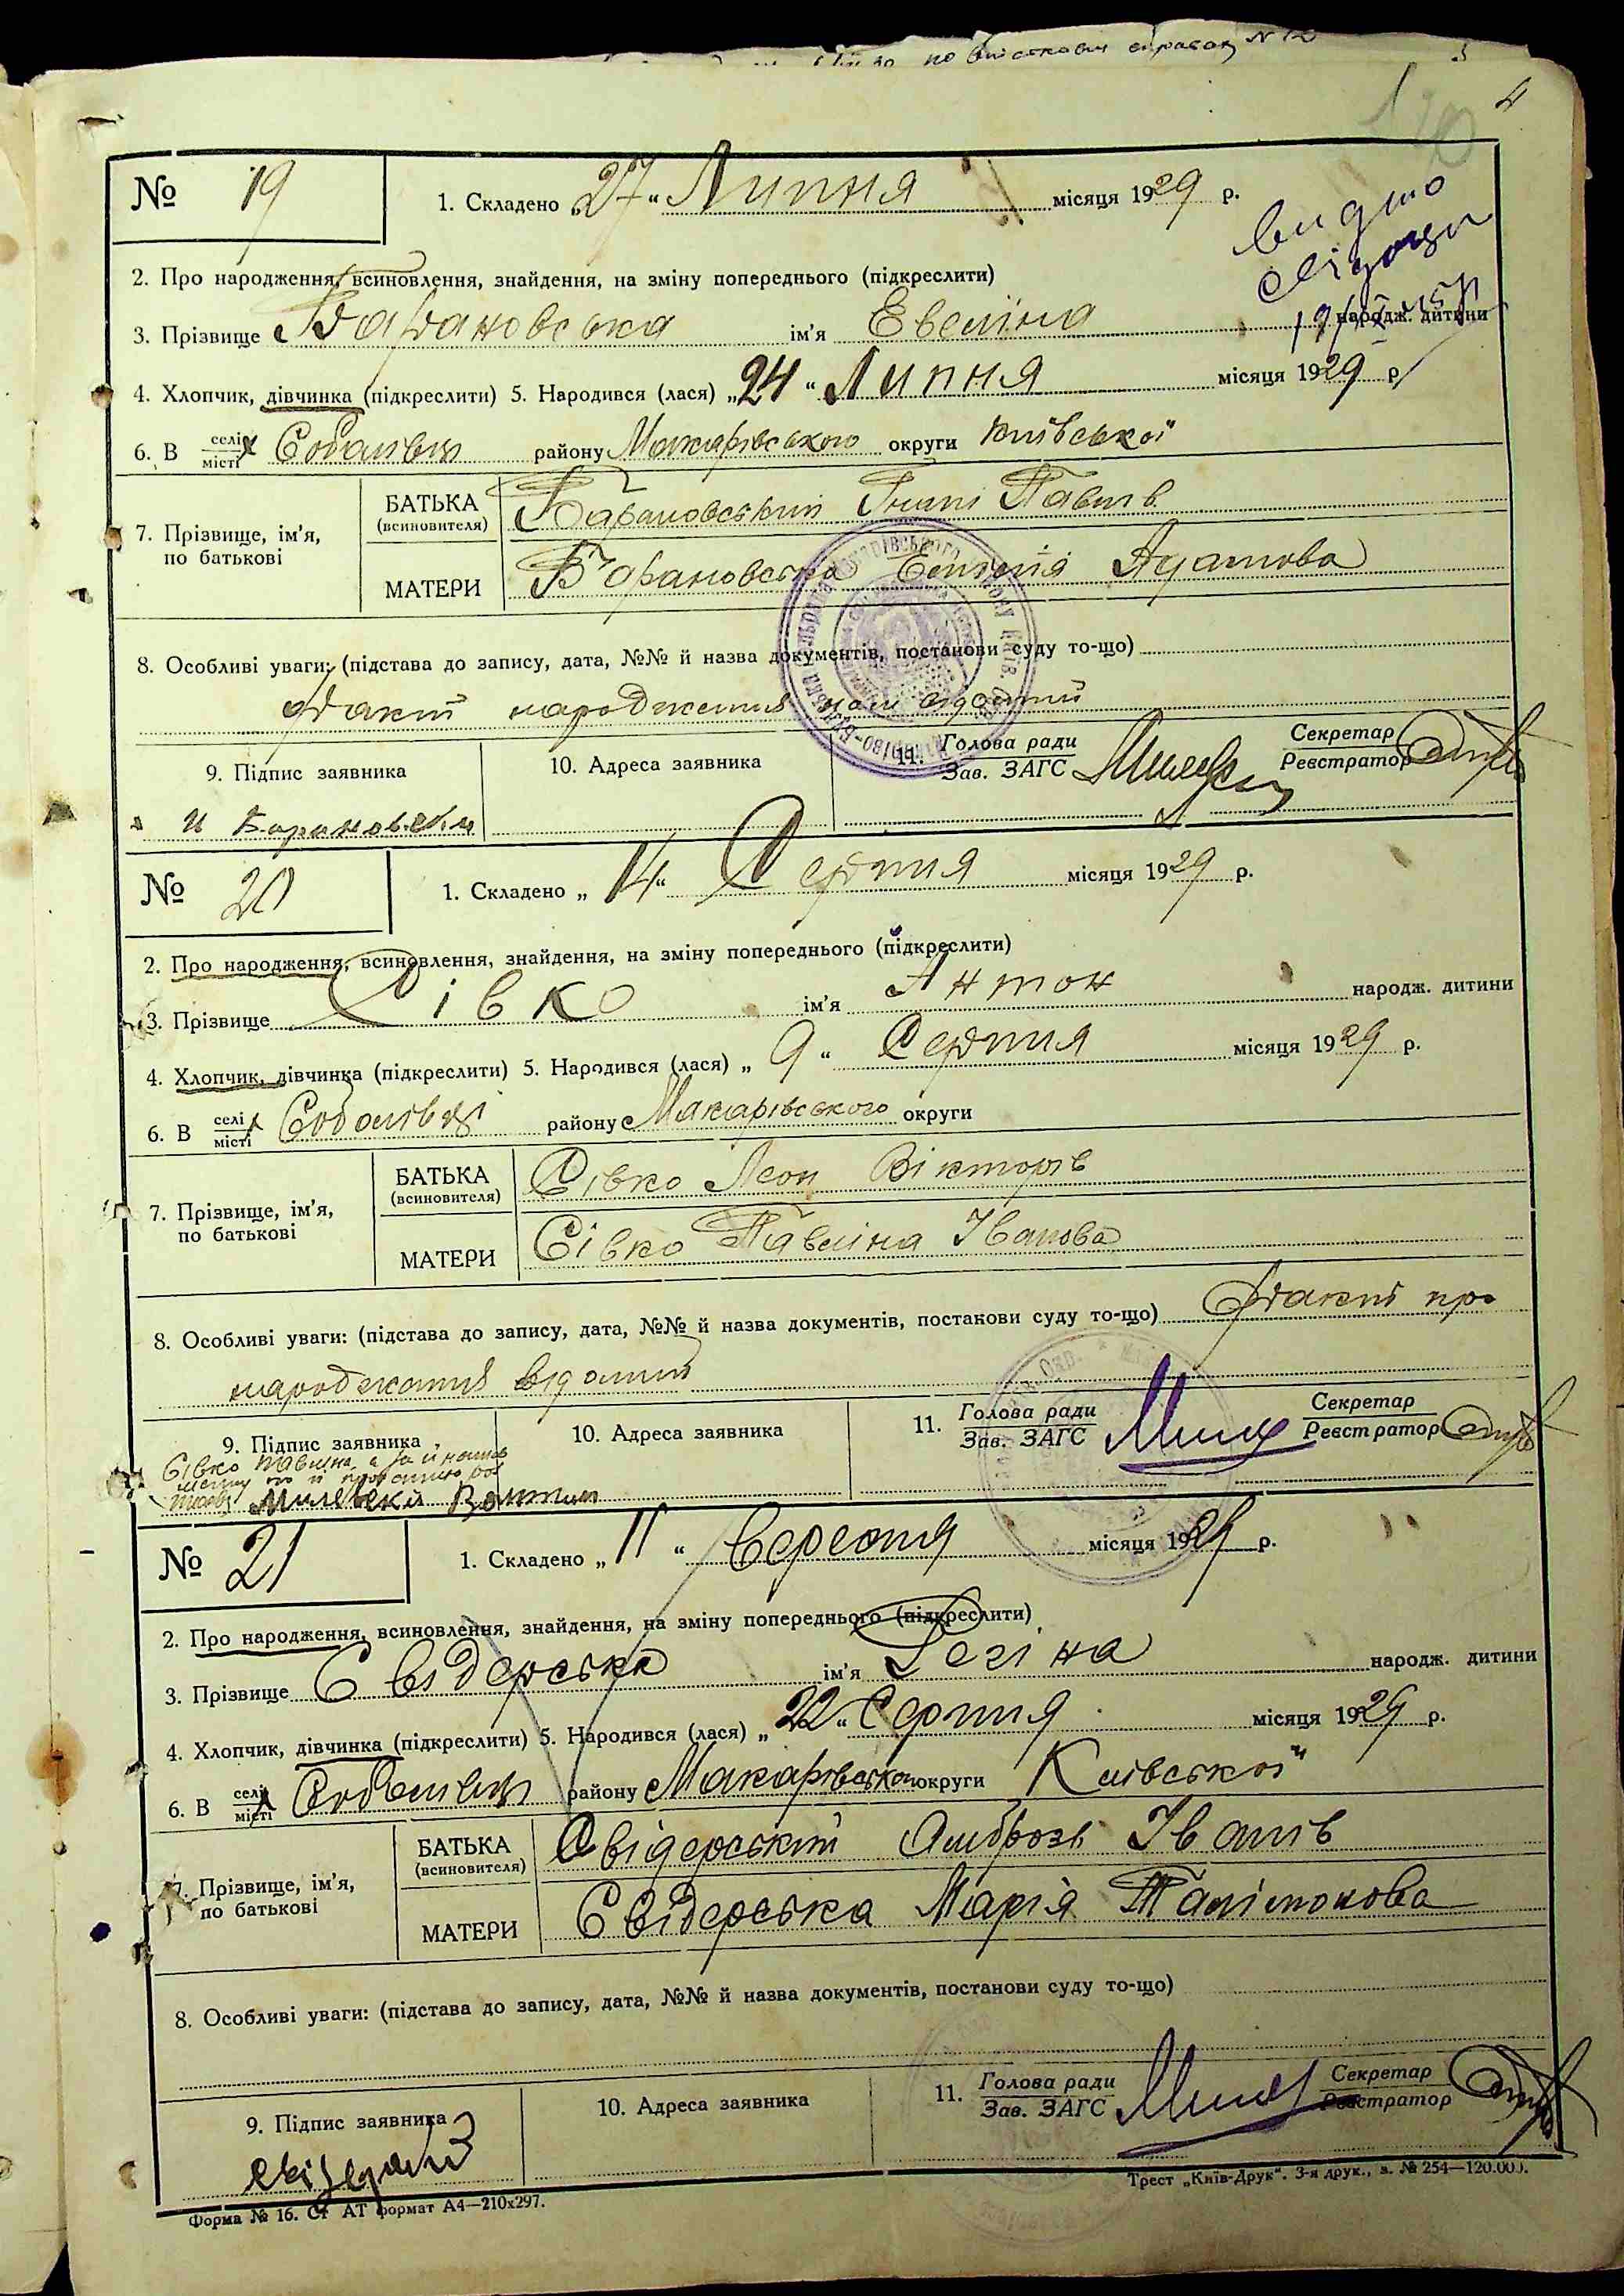 по військових справах № 12
4
№ 19
1. Складено „27“ Липня місяця 1929 р.
видно
2. Про народження, всиновлення, знайдення, на зміну попереднього (підкреслити)
3. Прізвище Барановська ім'я Евеліна народж. дитини
4. Хлопчик, дівчинка (підкреслити) 5. Народився (лася) „24“ Липня місяця 1929 р.
6. В селі місті Соболівці району Макарівського округи Київської
7. Прізвище, ім'я, по батькові
БАТЬКА (всиновителя) Барановський Павлів
МАТЕРИ Барановська Адамова
8. Особливі уваги: (підстава до запису, дата, №№ й назва документів, постанови суду то-що)
факт народження нам відомий
9. Підпис заявника
10. Адреса заявника
11. Голова ради Зав. ЗАГС
Секретар Реєстратор
И Барановски
№ 20
1. Складено „14“ Серпня місяця 1929 р.
2. Про народження, всиновлення, знайдення, на зміну попереднього (підкреслити)
3. Прізвище Сівко ім'я Антон народж. дитини
4. Хлопчик, дівчинка (підкреслити) 5. Народився (лася) „9“ Серпня місяця 1929 р.
6. В селі місті Соболівці району Макарівського округи
7. Прізвище, ім'я, по батькові
БАТЬКА (всиновителя) Сівко Леон Вікторів
МАТЕРИ Сівко Павліна Іванова
8. Особливі уваги: (підстава до запису, дата, №№ й назва документів, постанови суду то-що) Факт про
народження відомий
9. Підпис заявника
10. Адреса заявника
11. Голова ради Зав. ЗАГС
Секретар Реєстратор
Сівко Павліна а за її
№ 21
1. Складено „11“ Вересня місяця 1929 р.
2. Про народження, всиновлення, знайдення, на зміну попереднього (підкреслити)
3. Прізвище Свідерська ім'я Регіна народж. дитини
4. Хлопчик, дівчинка (підкреслити) 5. Народився (лася) „22“ Серпня місяця 1929 р.
6. В селі місті Соболівці району Макарівського округи Київської
7. Прізвище, ім'я, по батькові
БАТЬКА (всиновителя) Свідерський Амброзі Іванів
МАТЕРИ Свідерська Марія Палімонова
8. Особливі уваги: (підстава до запису, дата, №№ й назва документів, постанови суду то-що)
9. Підпис заявника
10. Адреса заявника
11. Голова ради Зав. ЗАГС
Секретар Реєстратор
Форма № 16. Ст АТ формат А4—210х297.
Трест „Київ-Друк“. 3-я друк., з. № 254—120.000.